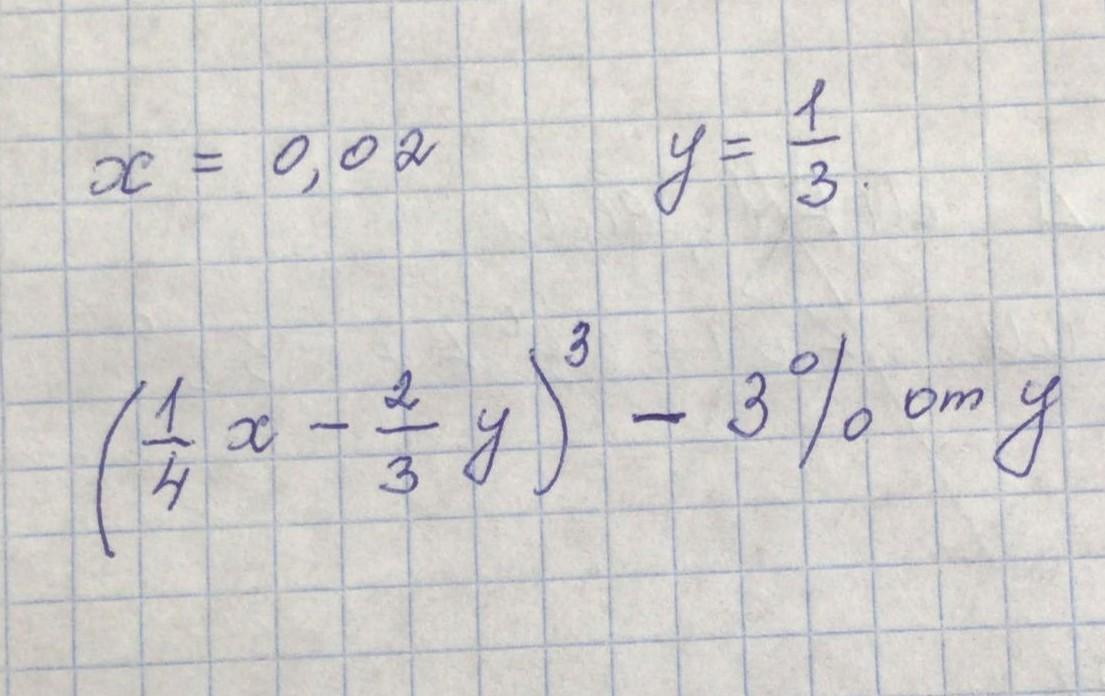 x = 0,02 y = 1/3.
(1/4 x - 2/3 y)³ - 3% от y